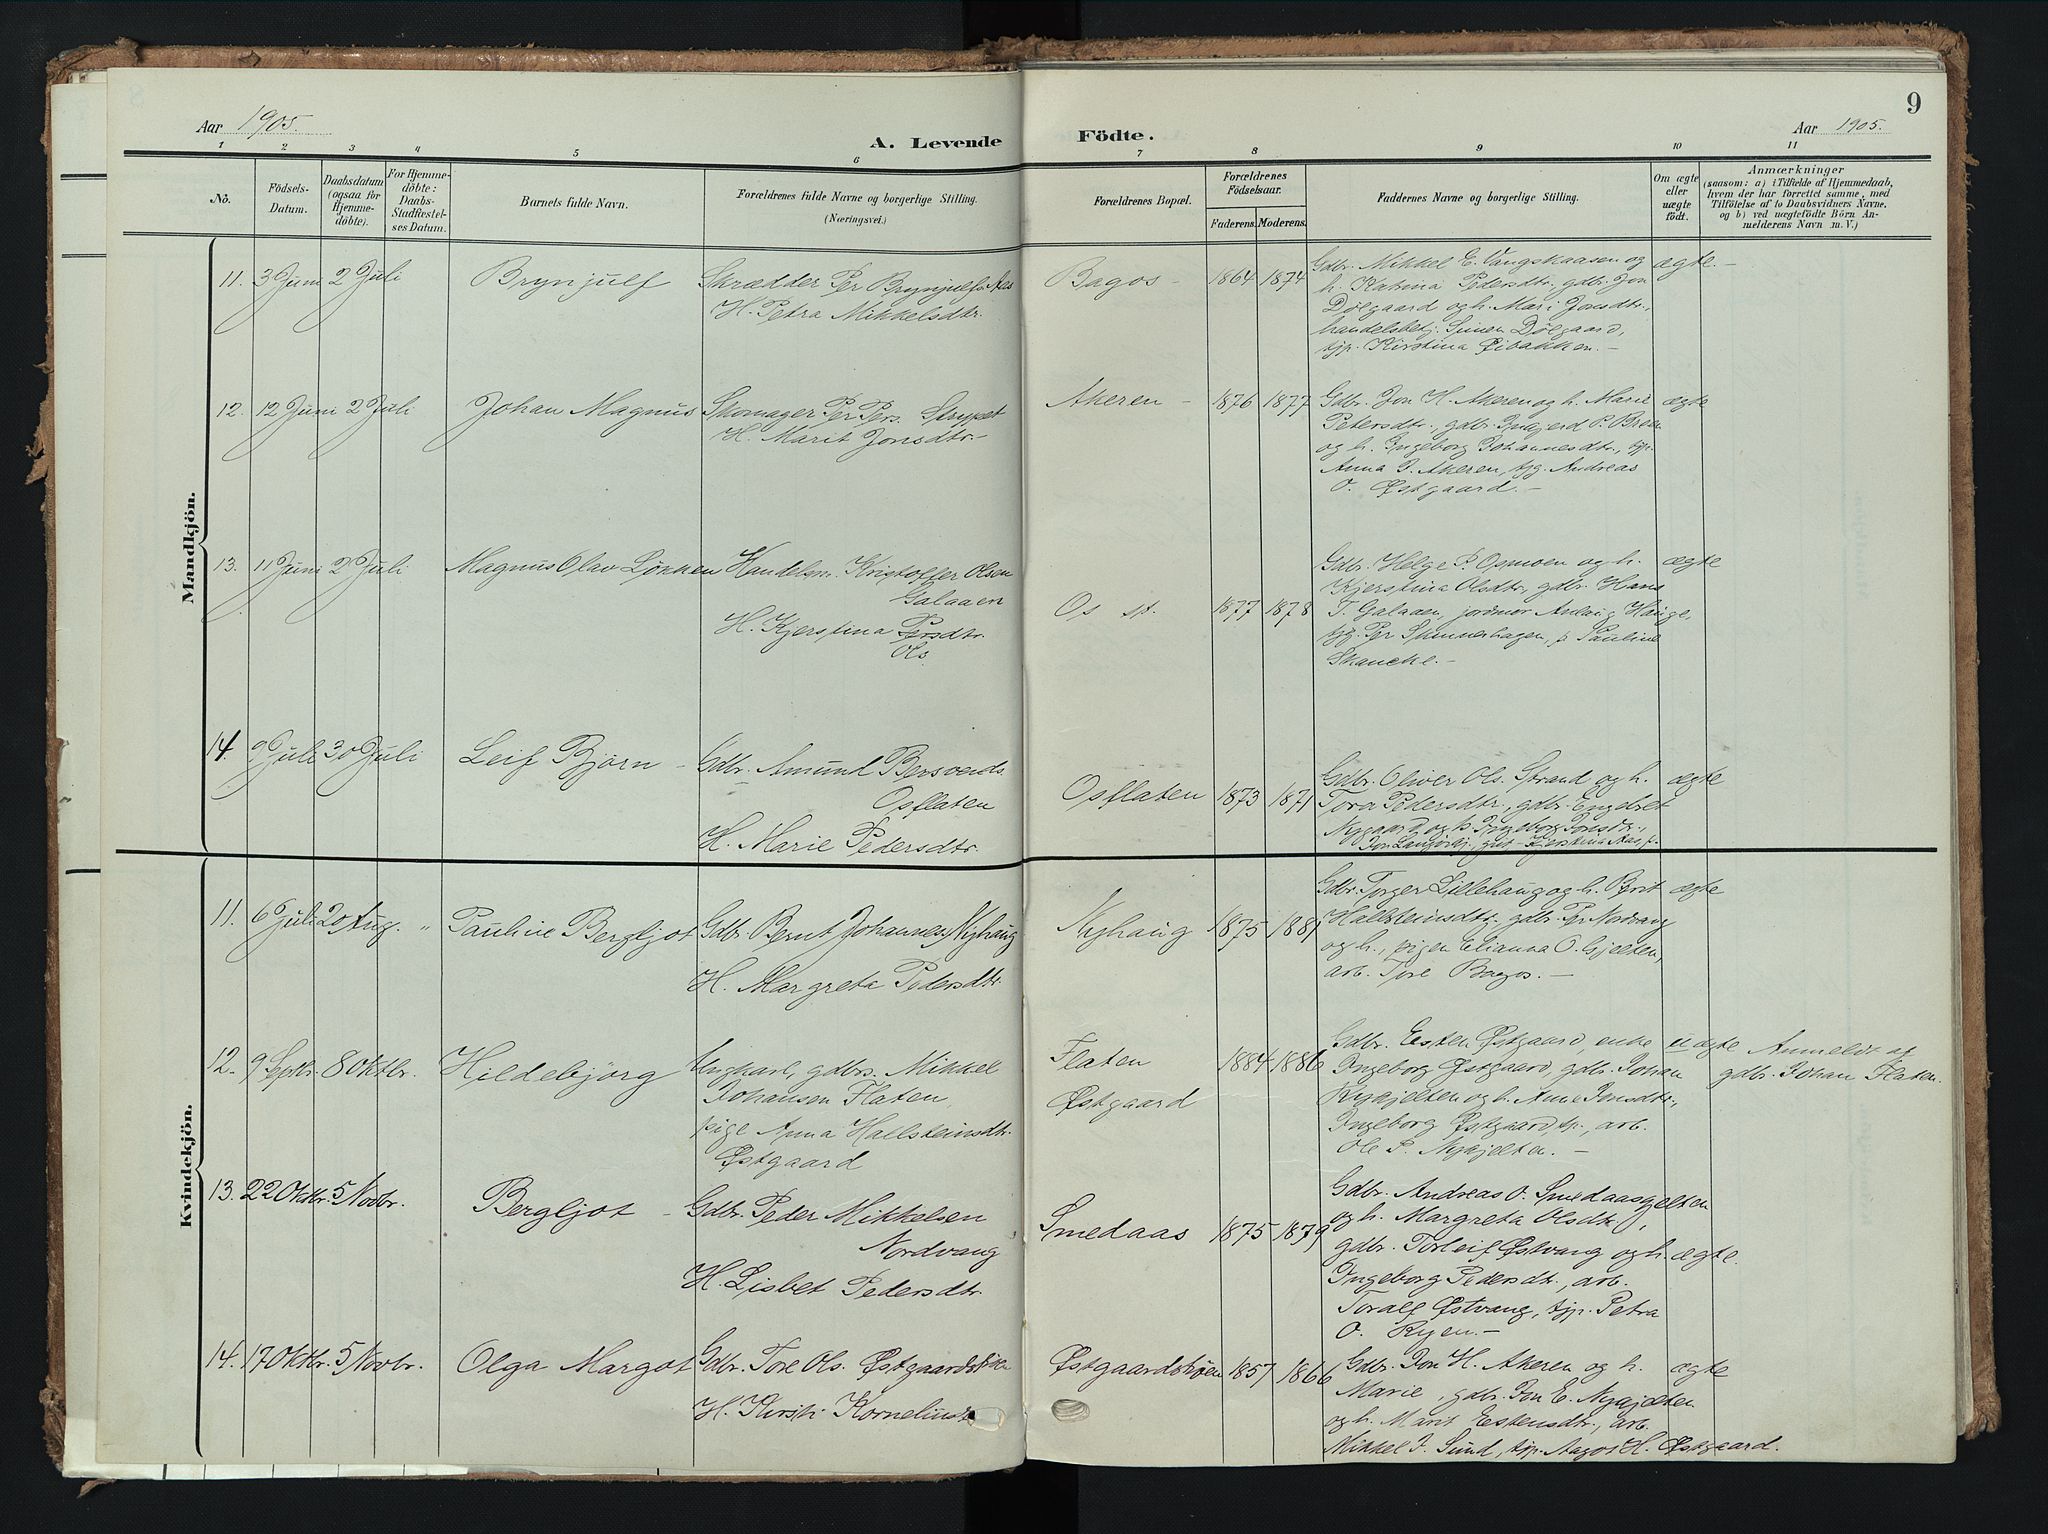 9
Aar 1905.
A. Levende Födte.
Aar 1905.
1 2 3 4 5 6 7 8 9 10 11
No.
Födsels-
Datum.
Daabsdatum
(ogsaa for
Hjemme-
döbte).
For Hjemme-
döbte:
Daabs-
Stadfæstel-
ses Datum.
Barnets fulde Navn.
Forældrenes fulde Navne og borgerlige Stilling.
(Næringsvei.)
Forældrenes Bopæl.
Forældrenes
Födselsaar.
Faderens. Moderens.
Faddernes Navne og borgerlige Stilling.
Om ægte
eller
uægte
födt.
Anmærkninger
(saasom: a) i Tilfælde af Hjemmedaab,
hvem der har forrettet samme, med
Tilföielse af to Daabsvidners Navne,
og b) ved uægtefödte Börn An-
melderens Navn m. V.)
Mandkjön.
11. 3 Juni 2 Juli Brynjulf Skrædder Per Brynjulfs. Aas
H. Petra Mikkelsdtr.
Bagos - 1864 1874
Gdbr. Mikkel E. Vangskaasen og ægte.-
h. Katrina Pedersdtr., gdbr. Jon
Dølgaard og h. Mari Jonsdtr.,
handelsbetj. Simen Dølgaard,
tjp. Kirstina Øibakken.-
12. 12 Juni 2 Juli Johan Magnus Skomager Per Pers. Strypet
H. Marit Jonsdtr.-
Akeren - 1876 1877
Gdbr. Jon H. Akeren og h. Marie ægte
Petersdtr., gdbr. P. Breen
og h. Ingeborg Johannesdtr., tjp.
Anna J. Akeren, tjg. Andreas
O. Østgaard.-
13. 11 Juni 2 Juli Magnus Olav Løkken Handelsm. Kristoffer Olsen
Galaaen
H. Kjerstina Persdtr.
Ols.
Os st. 1877 1878
Gdbr. Helge P. Osmoen og h. ægte
Kjerstina Olsdtr., gdbr. Hans
T. Galaaen, jordmor Hauge,
tjg. Per Sammenhagen, p Pauline
Skancke.-
14. 9 Juli 30 Juli Leif Bjørn - Gdbr. Amund Bersvends.
Osflaten
H. Marie Pedersdtr.
Osflaten 1873 1871
Gdbr. Oliver Ols. Strand og h. ægte
Tora Pedersdtr., gdbr. Engebret
Nygaard og h. Ingeborg Jonsdtr.,
Jon gut - Kjerstina Aas, p.-
Kvindekjön.
11. 6 Juli 20 Aug. " Pauline Bergljot Gdbr. Bernt Johannes. Nyhaug
H. Margreta Pedersdtr.
Nyhaug 1875 1881
Gdbr. Torger Lillehaug og h. Berit ægte
Hallsteinsdtr., gdbr. Per Nordvang
og h., pigen Elianna O. Gjelten,
arb. Tore Bagos.-
12. 9 Septbr. 8 Oktbr. Hildebjörg Ungkarl, gdbrs. Mikkel
Johansen Flaten,
pige Anna Hallsteinsdtr.
Østgaard
Flaten 1884 1886
Østgaard
Gdbr. Esten Østgaard, enke uægte Anmeldt af
Ingeborg Østgaard, gdbr. Johan gdbr. Johan Flaten.
Nykjelten og h. Anne Jonsdtr.,
Ingeborg Østgaard, tp., arb.
Ole P. Nykjelten.-
13. 22 Oktbr. 5 Novbr. Bergljot - Gdbr. Peder Mikkelsen
Nordvang
H. Lisbet Pedersdtr.
Smedaas 1875 1879
Gdbr. Andreas O. Smedaasgjelten
og h. Margreta Olsdtr.,
gdbr. Torleif Østvang og h. ægte.
Ingeborg Pedersdtr., arb.
Toralf Østvang, tjp. Petra
O. Ryen.-
14. 17 Oktbr. 5 Novbr. Olga Margot Gdbr. Tore Ols.
H. Kirsti
Østgaardstrøen 1857 1866
Gdbr. Jon H. Akeren og h. ægte
Marie, gdbr. Jon E. Nykjelten
og h. Marit Estensdtr., arb.
Mikkel J. Sund, tjp. Aagot H. Østgaard.